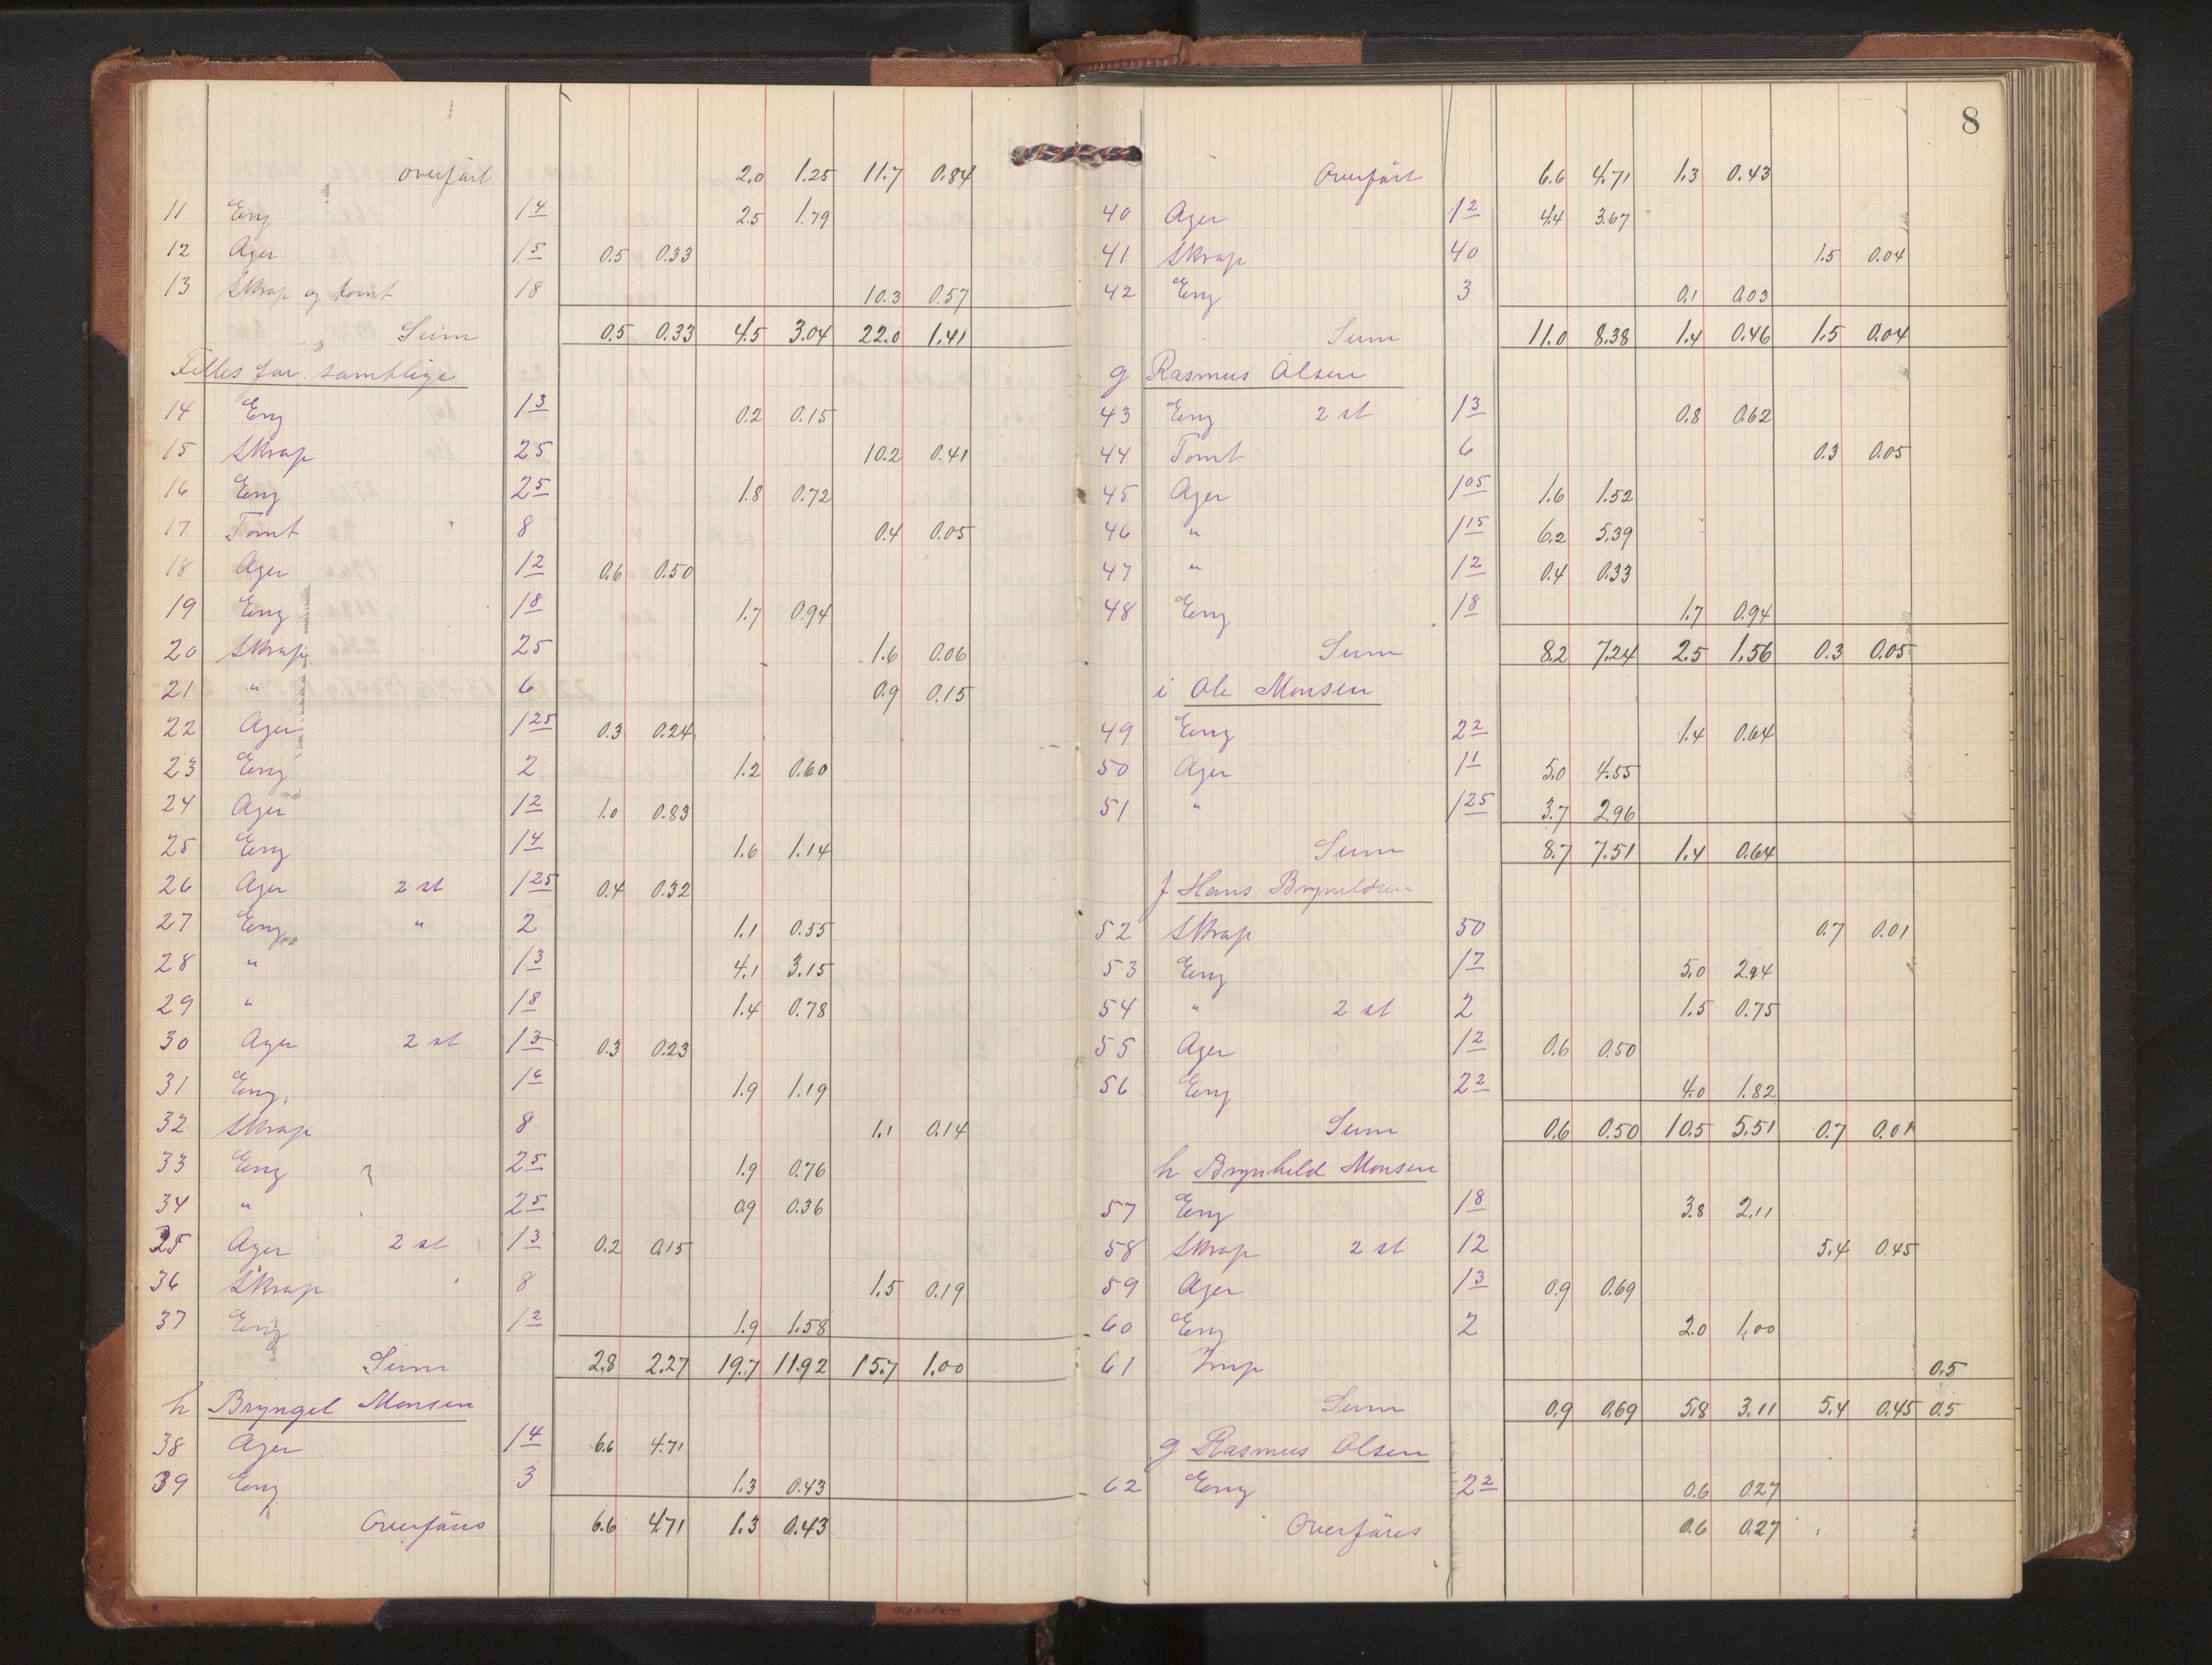 overført 2.0 1.25 11.7 0.84
11 Eng 1 4 2.5 1.79
12 Ager 1 5 0.5 0.33
13 Skrap og tomt 18 10.3 0.57
Sum 0.5 0.33 4.5 3.04 22.0 1.41
Felles for samtlige
14 Eng 1 3 0.2 0.15
15 Skrap 25 10.2 0.41
16 Eng 2 5 1.8 0.72
17 Tomt 8 0.4 0.05
18 Ager 1 2 0.6 0.50
19 Eng 1 8 1.7 0.94
20 Skrap 25 1.6 0.06
21 " 6 0.9 0.15
22 Ager 1 25 0.3 0.24
23 Eng 2 1.2 0.60
24 Ager 1 2 1.0 0.83
25 Eng 1 4 1.6 1.14
26 Ager 2 st 1 25 0.4 0.32
27 Eng " 2 1.1 0.55
28 " 1 3 4.1 3.15
29 " 1 8 1.4 0.78
30 Ager 2 st 1 3 0.3 0.23
31 Eng 1 6 1.9 1.19
32 Skrap 8 1.1 0.14
33 Eng 2 5 1.9 0.76
34 " 2 5 0.9 0.36
35 Ager 2 st 1 3 0.2 0.15
36 Skrap 8 1.5 0.19
37 Eng 1 2 1.9 1.58
Sum 2.8 2.27 19.7 11.92 15.7 1.00
h Bryngel Monsen
38 Ager 1 4 6.6 4.71
39 Eng 3 1.3 0.43
Overføres 6.6 4.71 1.3 0.43
8
Overført 6.6 4.71 1.3 0.43
40 Ager 1 2 4.4 3.67
41 Skrap 40 1.5 0.04
42 Eng 3 0.1 0.03
Sum 11.0 8.38 1.4 0.46 1.5 0.04
g Rasmus Olsen
43 Eng 2 st 1 3 0.8 0.62
44 Tomt 6 0.3 0.05
45 Ager 1 05 1.6 1.52
46 " 1 15 6.2 5.39
47 " 1 2 0.4 0.33
48 Eng 1 8 1.7 0.94
Sum 8.2 7.24 2.5 1.56 0.3 0.05
i Ole Monsen
49 Eng 2 2 1.4 0.64
50 Ager 1 1 5.0 4.55
51 " 1 25 3.7 2.96
Sum 8.7 7.51 1.4 0.64
f Hans Bryneldsen
52 Skrap 50 0.7 0.01
53 Eng 1 7 5.0 2.94
54 " 2 st 2 1.5 0.75
55 Ager 1 2 0.6 0.50
56 Eng 2 2 4.0 1.82
Sum 0.6 0.50 10.5 5.51 0.7 0.01
h Brynhild Monsen
57 Eng 1 8 3.8 2.11
58 Skrap 2 st 12 5.4 0.45
59 Ager 1 3 0.9 0.69
60 Eng 2 2.0 1.00
61 Imp 0.5
Sum 0.9 0.69 5.8 3.11 5.4 0.45 0.5
g Rasmus Olsen
62 Eng 2 2 0.6 0.27
Overføres 0.6 0.27